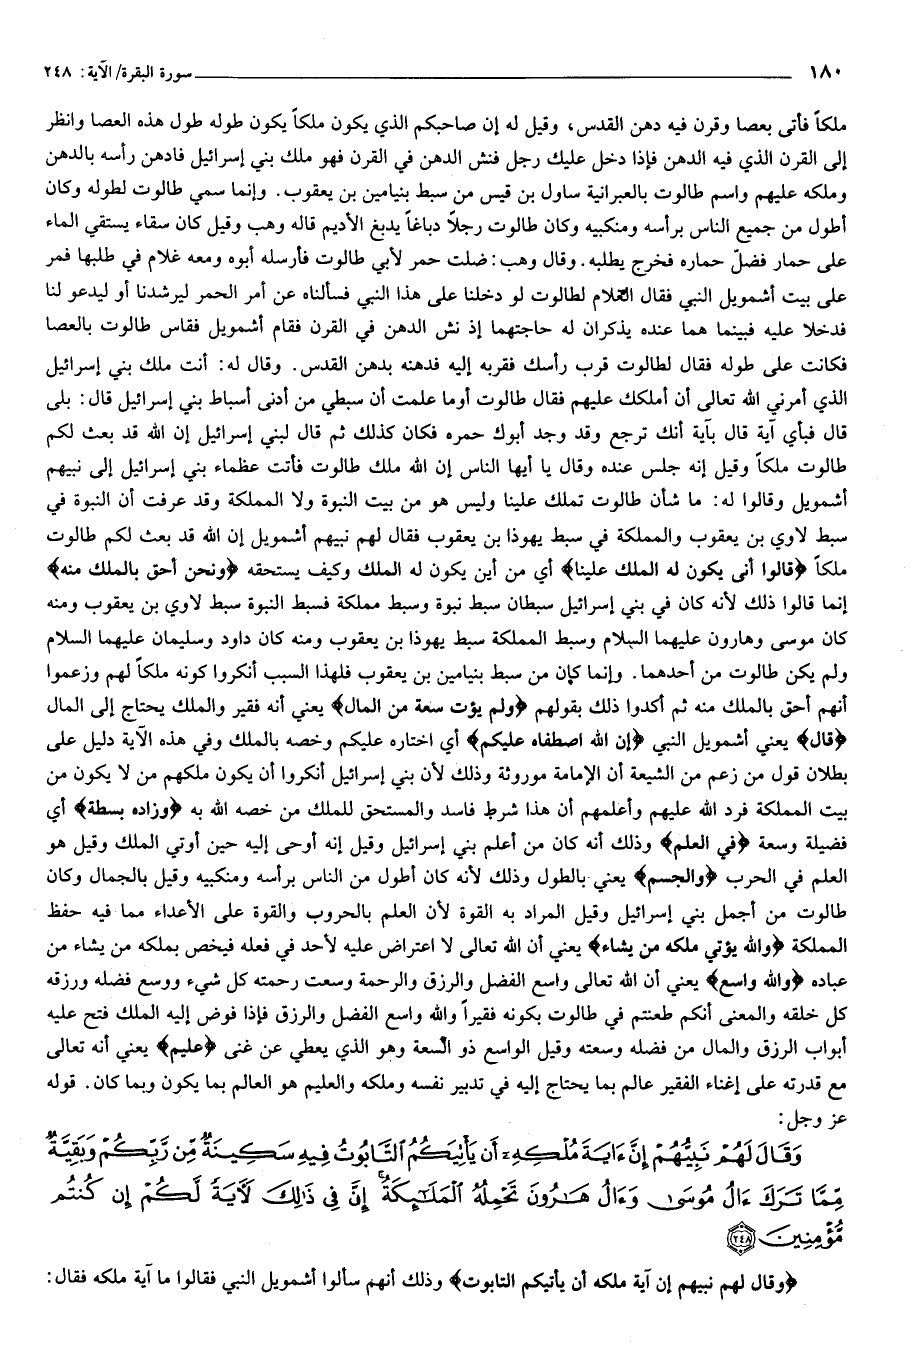 ١٨٠ سورة البقرة/ الآية: ٢٤٨
ملكاً فأتى بعصا وقرن فيه دهن القدس، وقيل له إن صاحبكم الذي يكون ملكاً يكون طوله طول هذه العصا وانظر
إلى القرن الذي فيه الدهن فإذا دخل عليك رجل فنش الدهن في القرن فهو ملك بني إسرائيل فادهن رأسه بالدهن
وملكه عليهم واسم طالوت بالعبرانية ساول بن قيس من سبط بنيامين بن يعقوب. وإنما سمي طالوت لطوله وكان
أطول من جميع الناس برأسه ومنكبيه وكان طالوت رجلاً دباغاً يدبغ الأديم قاله وهب وقيل كان سقاء يستقي الماء
على حمار فضلّ حماره فخرج يطلبه. وقال وهب: ضلت حمر لأبي طالوت فأرسله أبوه ومعه غلام في طلبها فمر
على بيت أشمويل النبي فقال الغلام لطالوت لو دخلنا على هذا النبي فسألناه عن أمر الحمر ليرشدنا أو ليدعو لنا
فدخلا عليه فبينما هما عنده يذكران له حاجتهما إذ نش الدهن في القرن فقام أشمويل فقاس طالوت بالعصا
فكانت على طوله فقال لطالوت قرب رأسك فقربه إليه فدهنه بدهن القدس. وقال له: أنت ملك بني إسرائيل
الذي أمرني الله تعالى أن أملكك عليهم فقال طالوت أوما علمت أن سبطي من أدنى أسباط بني إسرائيل قال: بلى
قال فبأي آية قال بآية أنك ترجع وقد وجد أبوك حمره فكان كذلك ثم قال لبني إسرائيل إن الله قد بعث لكم
طالوت ملكاً وقيل إنه جلس عنده وقال يا أيها الناس إن الله ملك طالوت فأتت عظماء بني إسرائيل إلى نبيهم
أشمويل وقالوا له: ما شأن طالوت تملك علينا وليس هو من بيت النبوة ولا المملكة وقد عرفت أن النبوة في
سبط لاوي بن يعقوب والمملكة في سبط يهوذا بن يعقوب فقال لهم نبيهم أشمويل إن الله قد بعث لكم طالوت
ملكاً ﴿قالوا أنى يكون له الملك علينا﴾ أي من أين يكون له الملك وكيف يستحقه ﴿ونحن أحق بالملك منه﴾
إنما قالوا ذلك لأنه كان في بني إسرائيل سبطان سبط نبوة وسبط مملكة فسبط النبوة سبط لاوي بن يعقوب ومنه
كان موسى وهارون عليهما السلام وسبط المملكة سبط يهوذا بن يعقوب ومنه كان داود وسليمان عليهما السلام
ولم يكن طالوت من أحدهما. وإنما كان من سبط بنيامين بن يعقوب فلهذا السبب أنكروا كونه ملكاً لهم وزعموا
أنهم أحق بالملك منه ثم أكدوا ذلك بقولهم ﴿ولم يؤت سعة من المال﴾ يعني أنه فقير والملك يحتاج إلى المال
﴿قال﴾ يعني أشمويل النبي ﴿إن الله اصطفاه عليكم﴾ أي اختاره عليكم وخصه بالملك وفي هذه الآية دليل على
بطلان قول من زعم من الشيعة أن الإمامة موروثة وذلك لأن بني إسرائيل أنكروا أن يكون ملكهم من لا يكون من
بيت المملكة فرد الله عليهم وأعلمهم أن هذا شرط فاسد والمستحق للملك من خصه الله به ﴿وزاده بسطة﴾ أي
فضيلة وسعة ﴿في العلم﴾ وذلك أنه كان من أعلم بني إسرائيل وقيل إنه أوحى إليه حين أوتي الملك وقيل هو
العلم في الحرب ﴿والجسم﴾ يعني بالطول وذلك لأنه كان أطول من الناس برأسه ومنكبيه وقيل بالجمال وكان
طالوت من أجمل بني إسرائيل وقيل المراد به القوة لأن العلم بالحروب والقوة على الأعداء مما فيه حفظ
المملكة ﴿والله يؤتي ملكه من يشاء﴾ يعني أن الله تعالى لا اعتراض عليه لأحد في فعله فيخص بملكه من يشاء من
عباده ﴿والله واسع﴾ يعني أن الله تعالى واسع الفضل والرزق والرحمة وسعت رحمته كل شيء ووسع فضله ورزقه
كل خلقه والمعنى أنكم طعنتم في طالوت بكونه فقيراً والله واسع الفضل والرزق فإذا فوض إليه الملك فتح عليه
أبواب الرزق والمال من فضله وسعته وقيل الواسع ذو السعة وهو الذي يعطي عن غنى ﴿عليم﴾ يعني أنه تعالى
مع قدرته على إغناء الفقير عالم بما يحتاج إليه في تدبير نفسه وملكه والعليم هو العالم بما يكون وبما كان. قوله
عز وجل:
وَقَالَ لَهُمْ نَبِيُّهُمْ إِنَّ ءَايَةَ مُلْكِهِۦٓ أَن يَأْتِيَكُمُ ٱلتَّابُوتُ فِيهِ سَكِينَةٌ مِّن رَّبِّكُمْ وَبَقِيَّةٌ
مِّمَّا تَرَكَ ءَالُ مُوسَىٰ وَءَالُ هَٰرُونَ تَحْمِلُهُ ٱلْمَلَٰٓئِكَةُ ۚ إِنَّ فِى ذَٰلِكَ لَءَايَةً لَّكُمْ إِن كُنتُم
مُّؤْمِنِينَ ٢٤٨
﴿وقال لهم نبيهم إن آية ملكه أن يأتيكم التابوت﴾ وذلك أنهم سألوا أشمويل النبي فقالوا ما آية ملكه فقال: